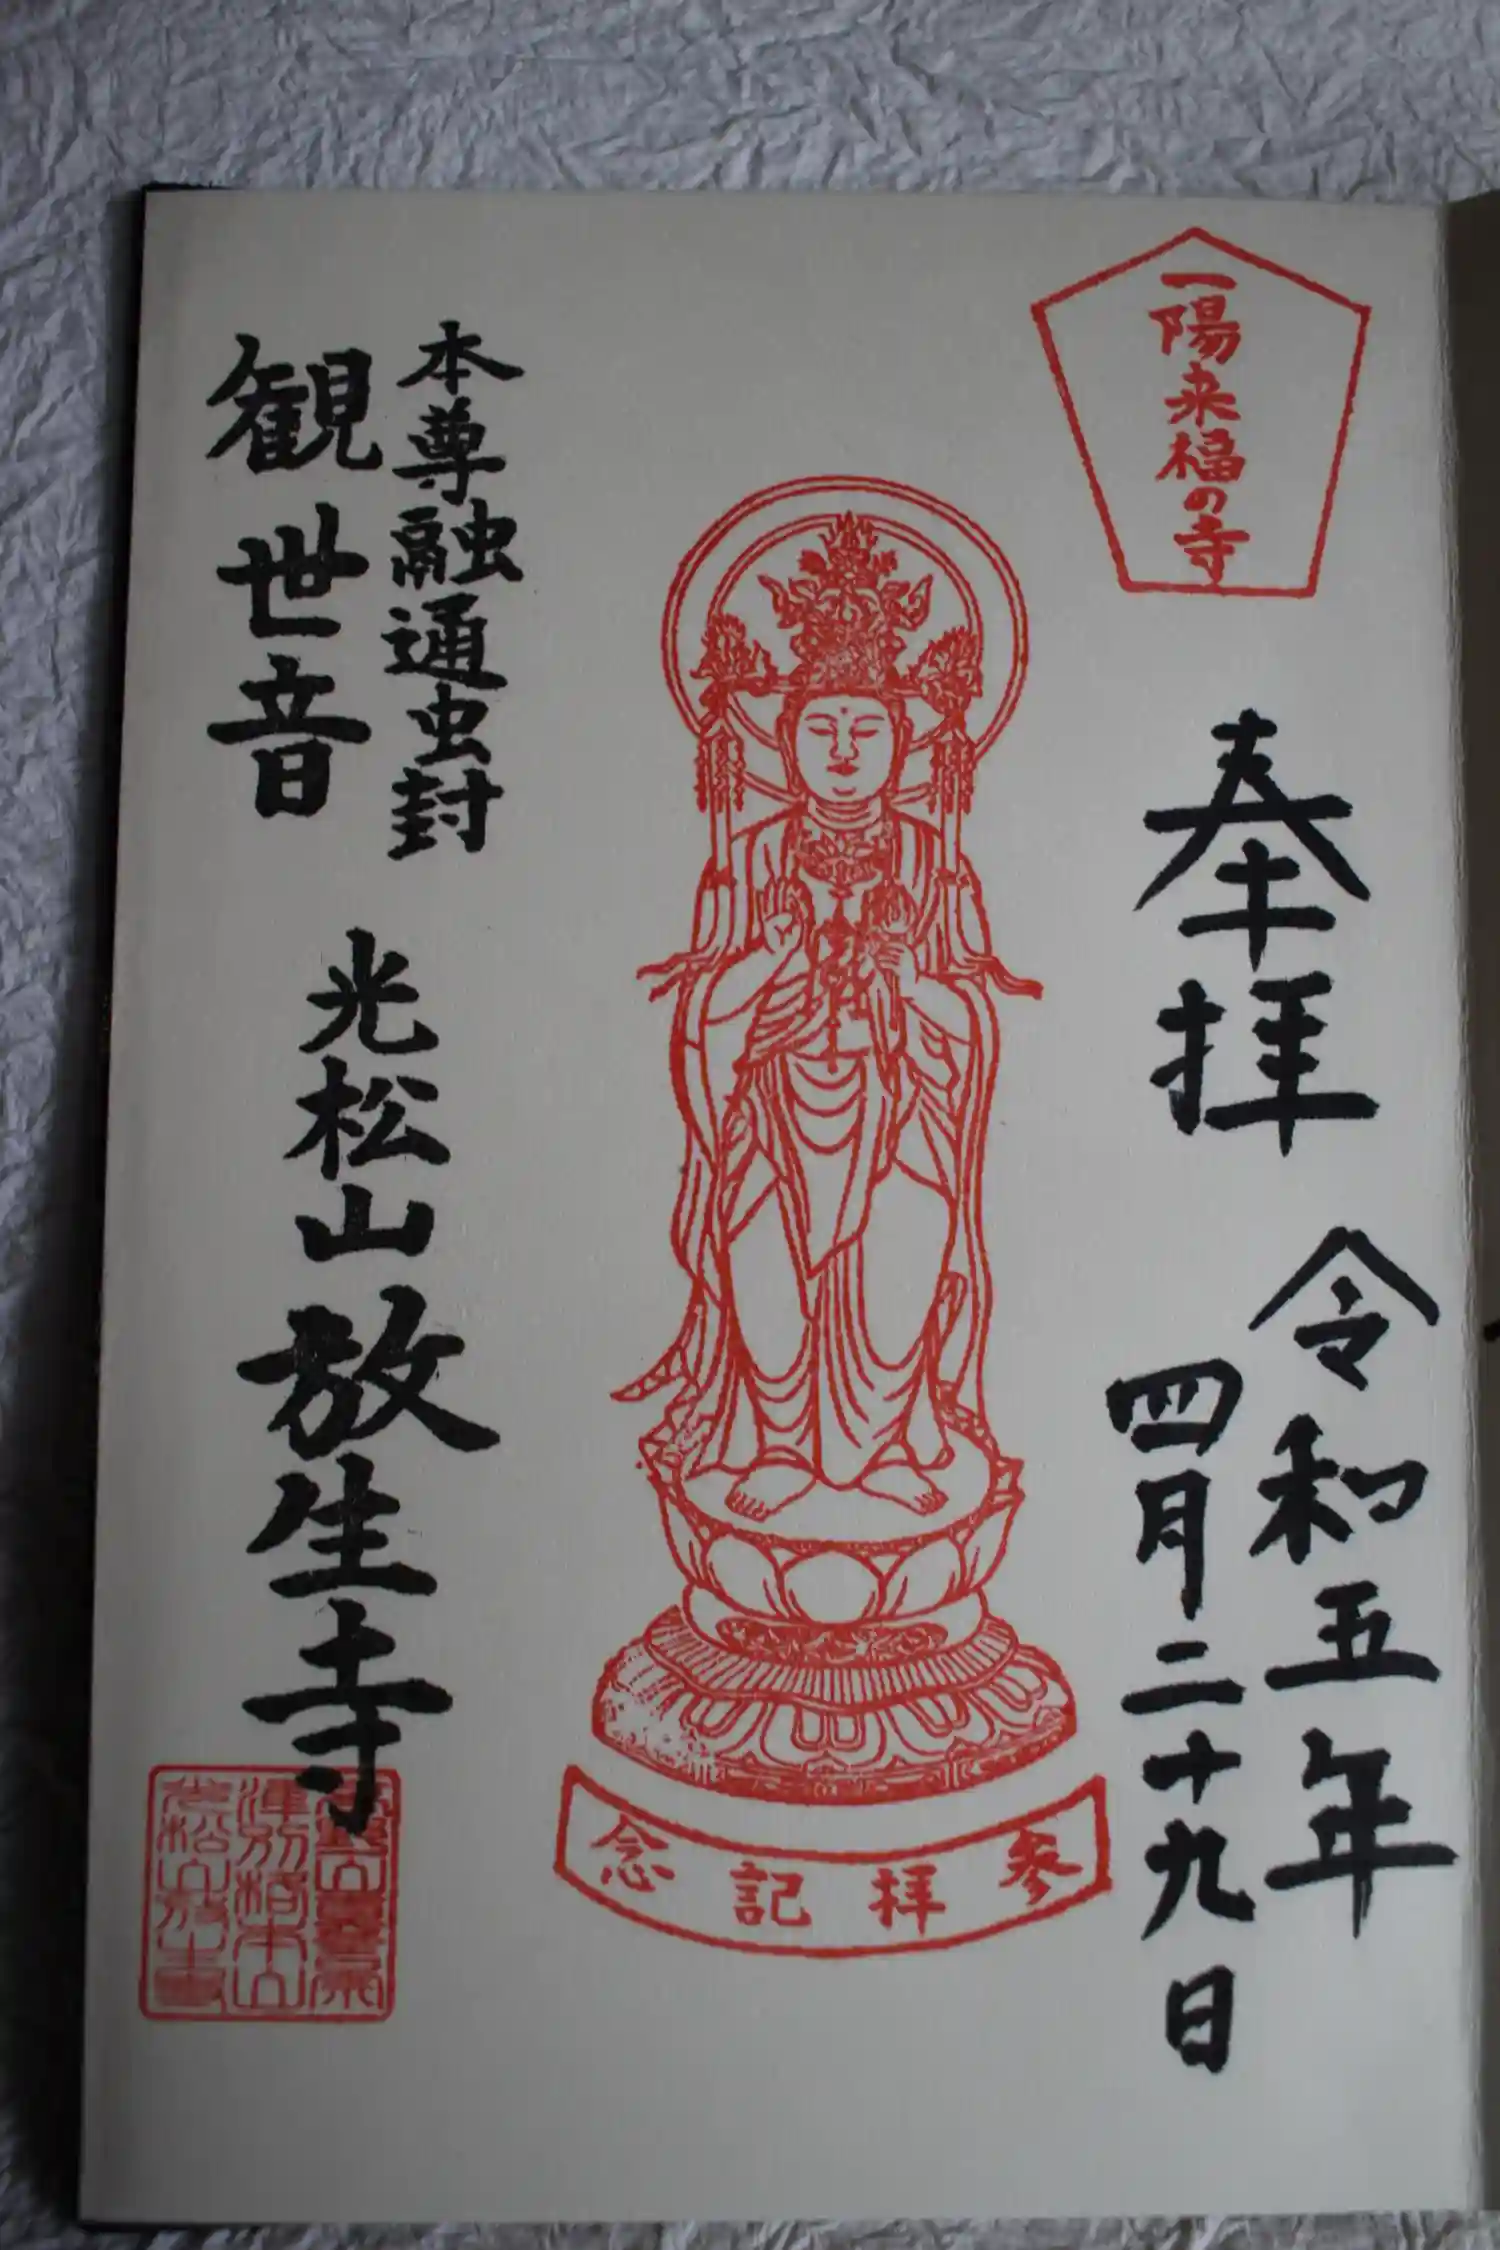 一陽来福の寺
奉拝
令和五年
四月二十九日
参拝記念
本尊融通虫封
観世音
光松山
放生寺